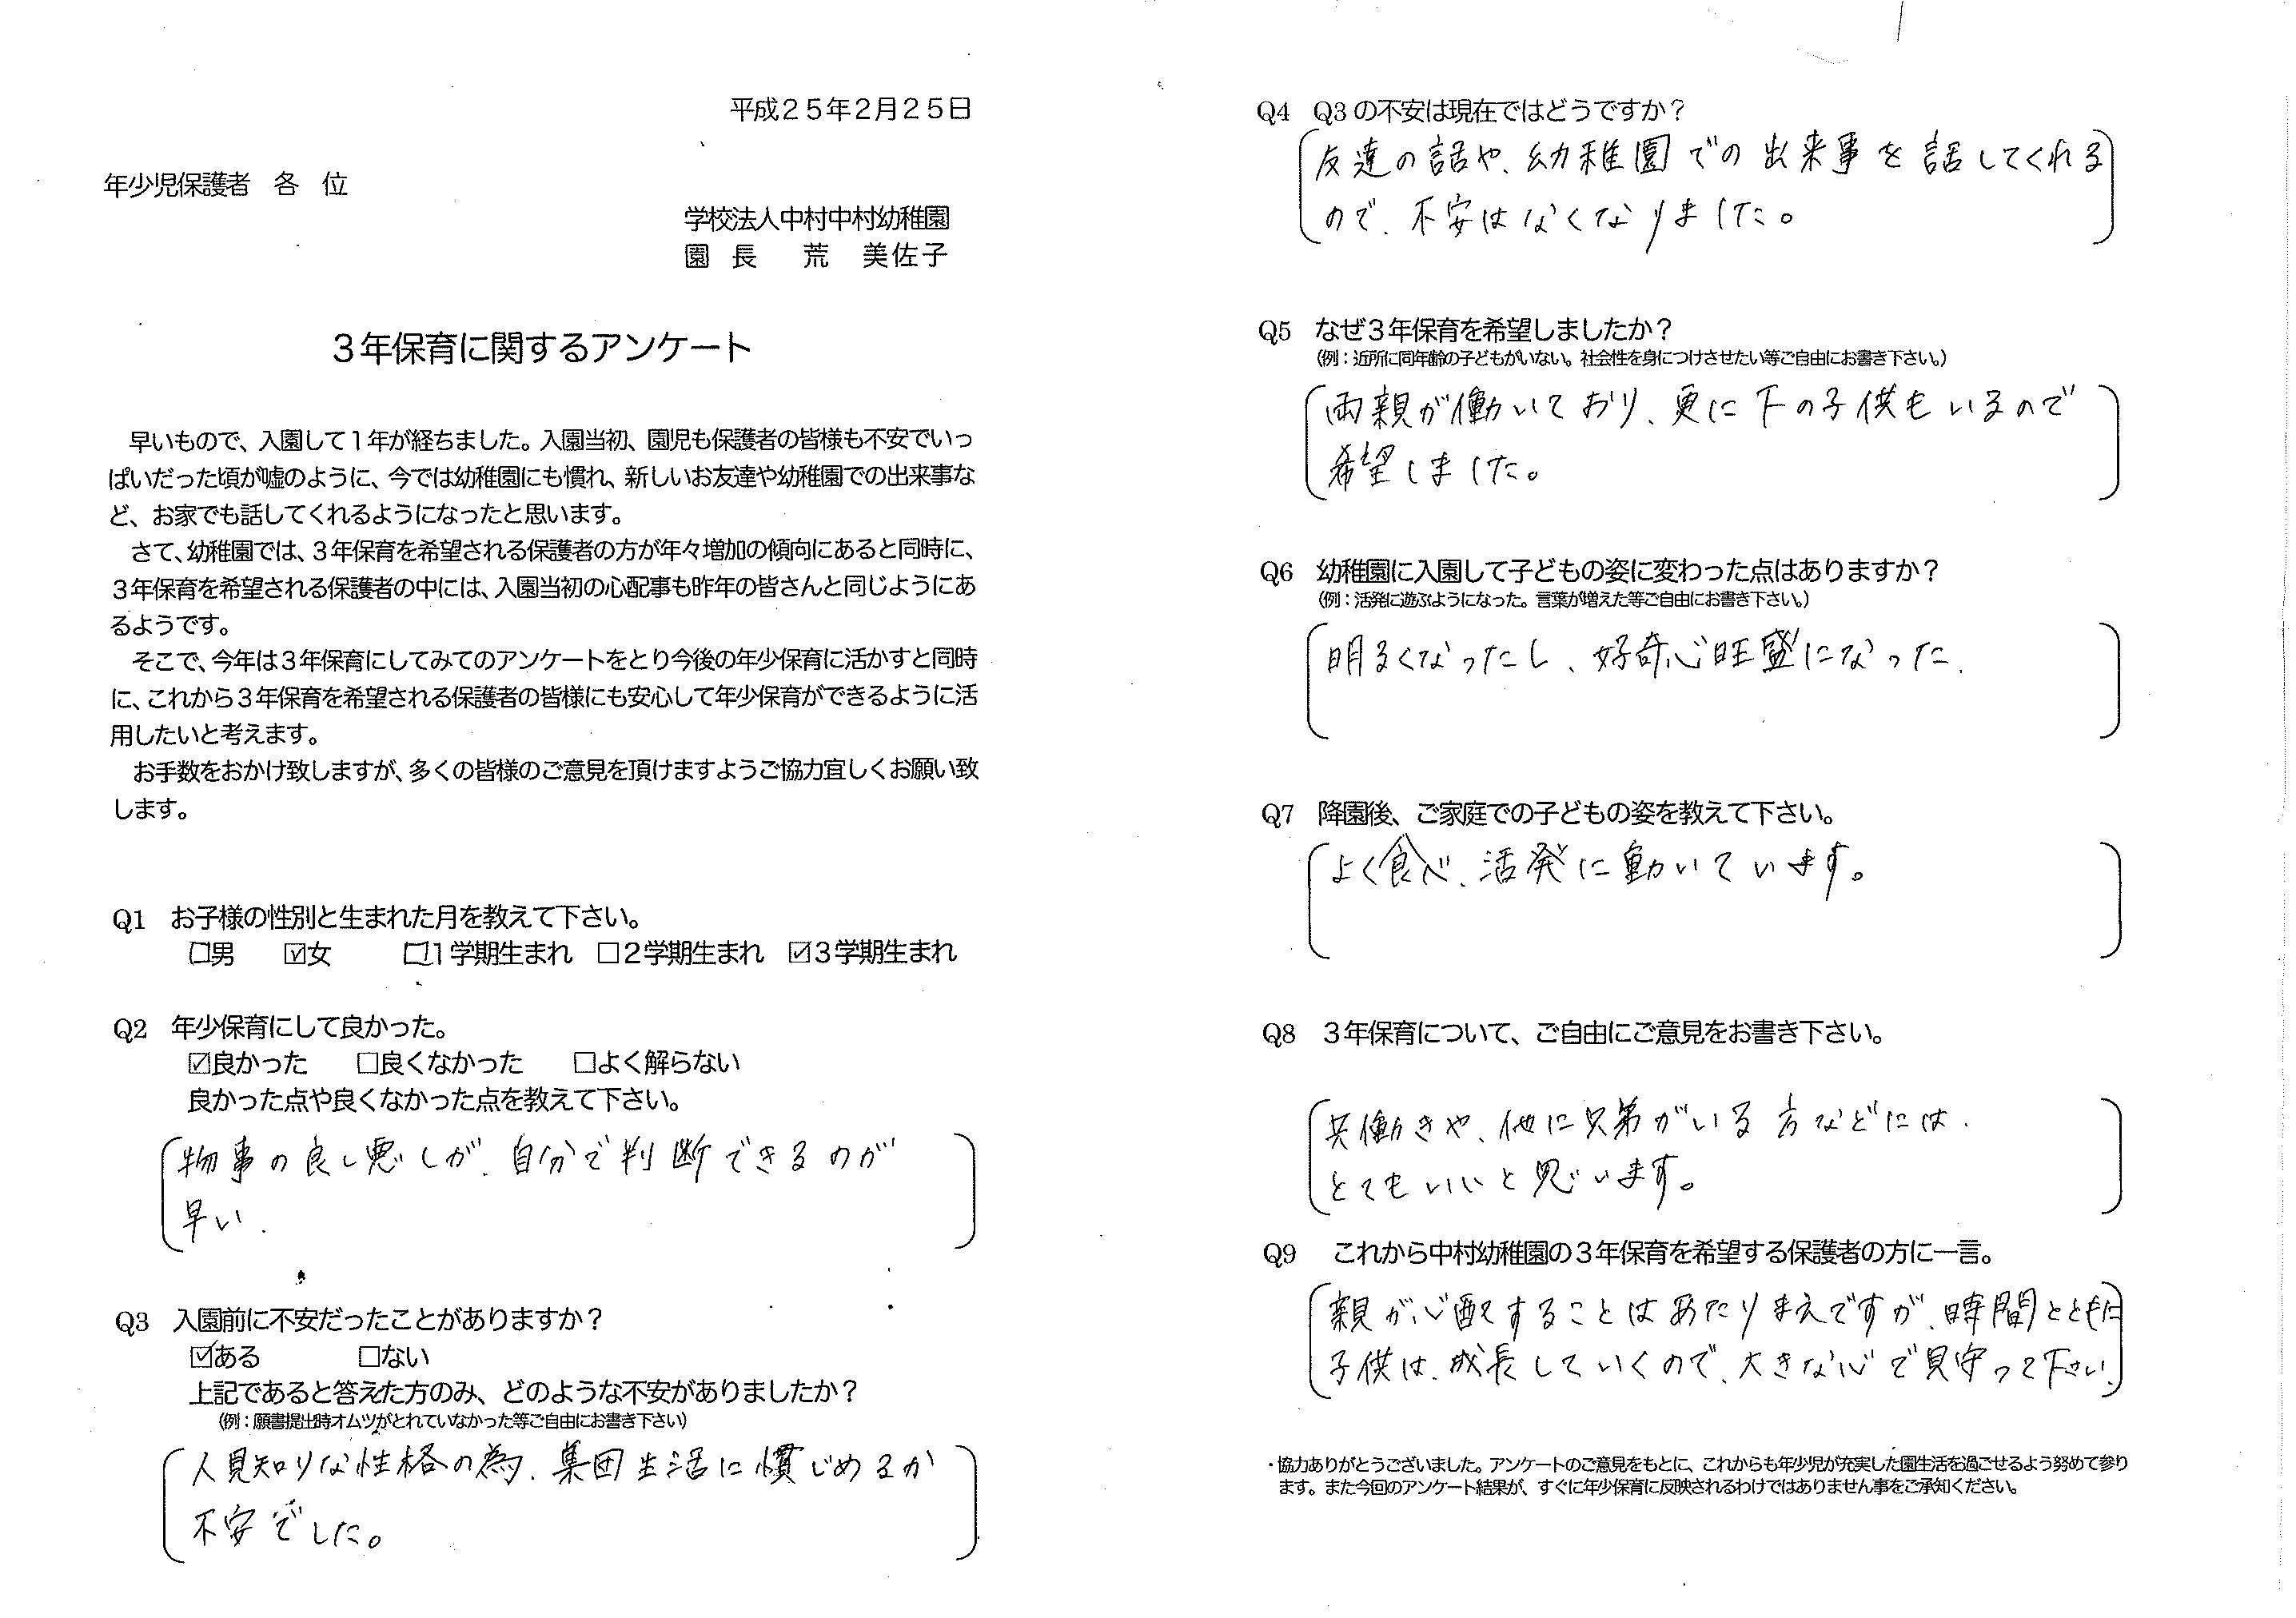 平成25年2月25日
年少児保護者　各　位
学校法人中村中村幼稚園
園　長　　荒　美佐子
3年保育に関するアンケート
早いもので、入園して1年が経ちました。入園当初、園児も保護者の皆様も不安でいっ
ぱいだった頃が嘘のように、今では幼稚園にも慣れ、新しいお友達や幼稚園での出来事な
ど、お家でも話してくれるようになったと思います。
さて、幼稚園では、3年保育を希望される保護者の方が年々増加の傾向にあると同時に、
3年保育を希望される保護者の中には、入園当初の心配事も昨年の皆さんと同じようにあ
るようです。
そこで、今年は3年保育にしてみてのアンケートをとり今後の年少保育に活かすと同時
に、これから3年保育を希望される保護者の皆様にも安心して年少保育ができるように活
用したいと考えます。
お手数をおかけ致しますが、多くの皆様のご意見を頂けますようご協力宜しくお願い致
します。
Q1　お子様の性別と生まれた月を教えて下さい。
□男　☑女　□1学期生まれ　□2学期生まれ　☑3学期生まれ
Q2　年少保育にして良かった。
☑良かった　□良くなかった　□よく解らない
良かった点や良くなかった点を教えて下さい。
物事の良し悪しが、自分で判断できるのが
早い.
Q3　入園前に不安だったことがありますか？
☑ある　□ない
上記であると答えた方のみ、どのような不安がありましたか？
（例：願書提出時オムツがとれていなかった等ご自由にお書き下さい）
人見知りな性格の為、集団生活に慣じめるか
不安でした。
Q4　Q3の不安は現在ではどうですか？
友達の話や、幼稚園での出来事を話してくれる
ので、不安はなくなりました。
Q5　なぜ3年保育を希望しましたか？
（例：近所に同年齢の子どもがいない。社会性を身につけさせたい等ご自由にお書き下さい。）
両親が働いており、更に下の子供もいるので
希望しました。
Q6　幼稚園に入園して子どもの姿に変わった点はありますか？
（例：活発に遊ぶようになった。言葉が増えた等ご自由にお書き下さい。）
明るくなったし、好奇心旺盛になった.
Q7　降園後、ご家庭での子どもの姿を教えて下さい。
よく食べ、活発に動いています。
Q8　3年保育について、ご自由にご意見をお書き下さい。
共働きや、他に兄弟がいる方などには、
とてもいいと思います。
Q9　これから中村幼稚園の3年保育を希望する保護者の方に一言。
親が心配することはあたりまえですが、時間とともに
子供は、成長していくので、大きな心で見守って下さい.
・協力ありがとうございました。アンケートのご意見をもとに、これからも年少児が充実した園生活を過ごせるよう努めて参り
ます。また今回のアンケート結果が、すぐに年少保育に反映されるわけではありません事をご承知ください。